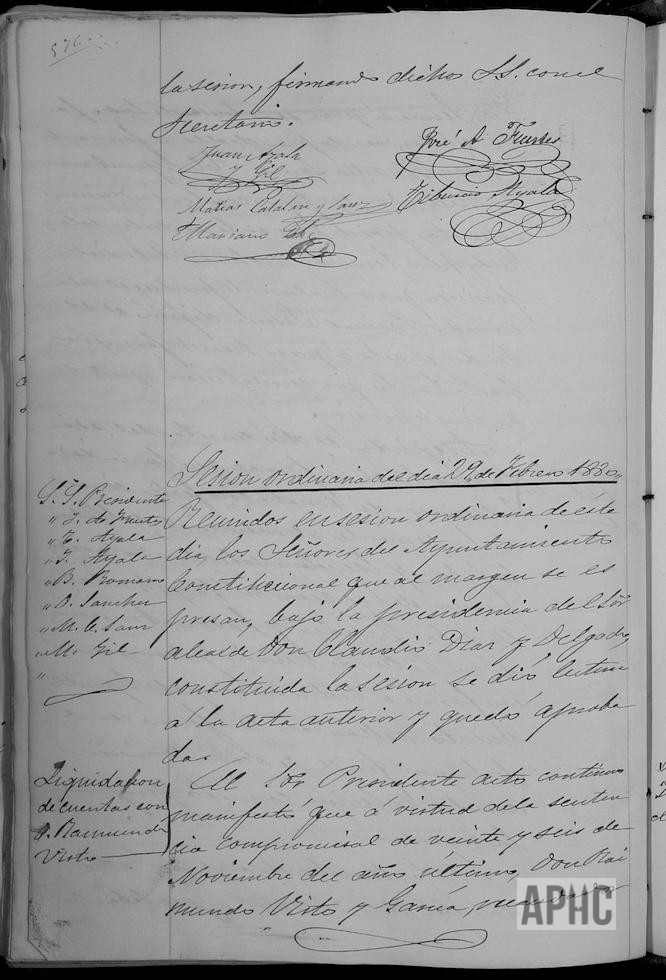 576
la sesion, firmando dichos S.S. con el
Secretario.
José A Fuertes
Juan Ayala
y Gil
Tiburcio Ayala
Matias Catalan y Sanz
Mariano Gil
Sesion ordinaria del dia 29 de Febrero 1880
S. S. Presidente
" J. A. Fuertes
" T. Ayala
" J. Ayala
" B. Romano
" D. Sanchez
" M. C. Sanz
" M. Gil
"
Reunidos en sesion ordinaria de éste
dia, los Señores del Ayuntamiento
Constitucional que al margen se es
presan, bajo la presidencia del Sõr
alcalde Don Claudio Diaz y Delgado,
constituida la sesion se dió lectura
á la acta anterior y quedó aproba
da.
Liquidacion
de cuentas con
D. Raimundo
Visto
El Sõr Presidente acto continuo
manifestó que á virtud de la senten
cia compromisal de veinte y seis de
Noviembre del año último, Don Rai
mundo Visto y Garcia, recaudador
APHC